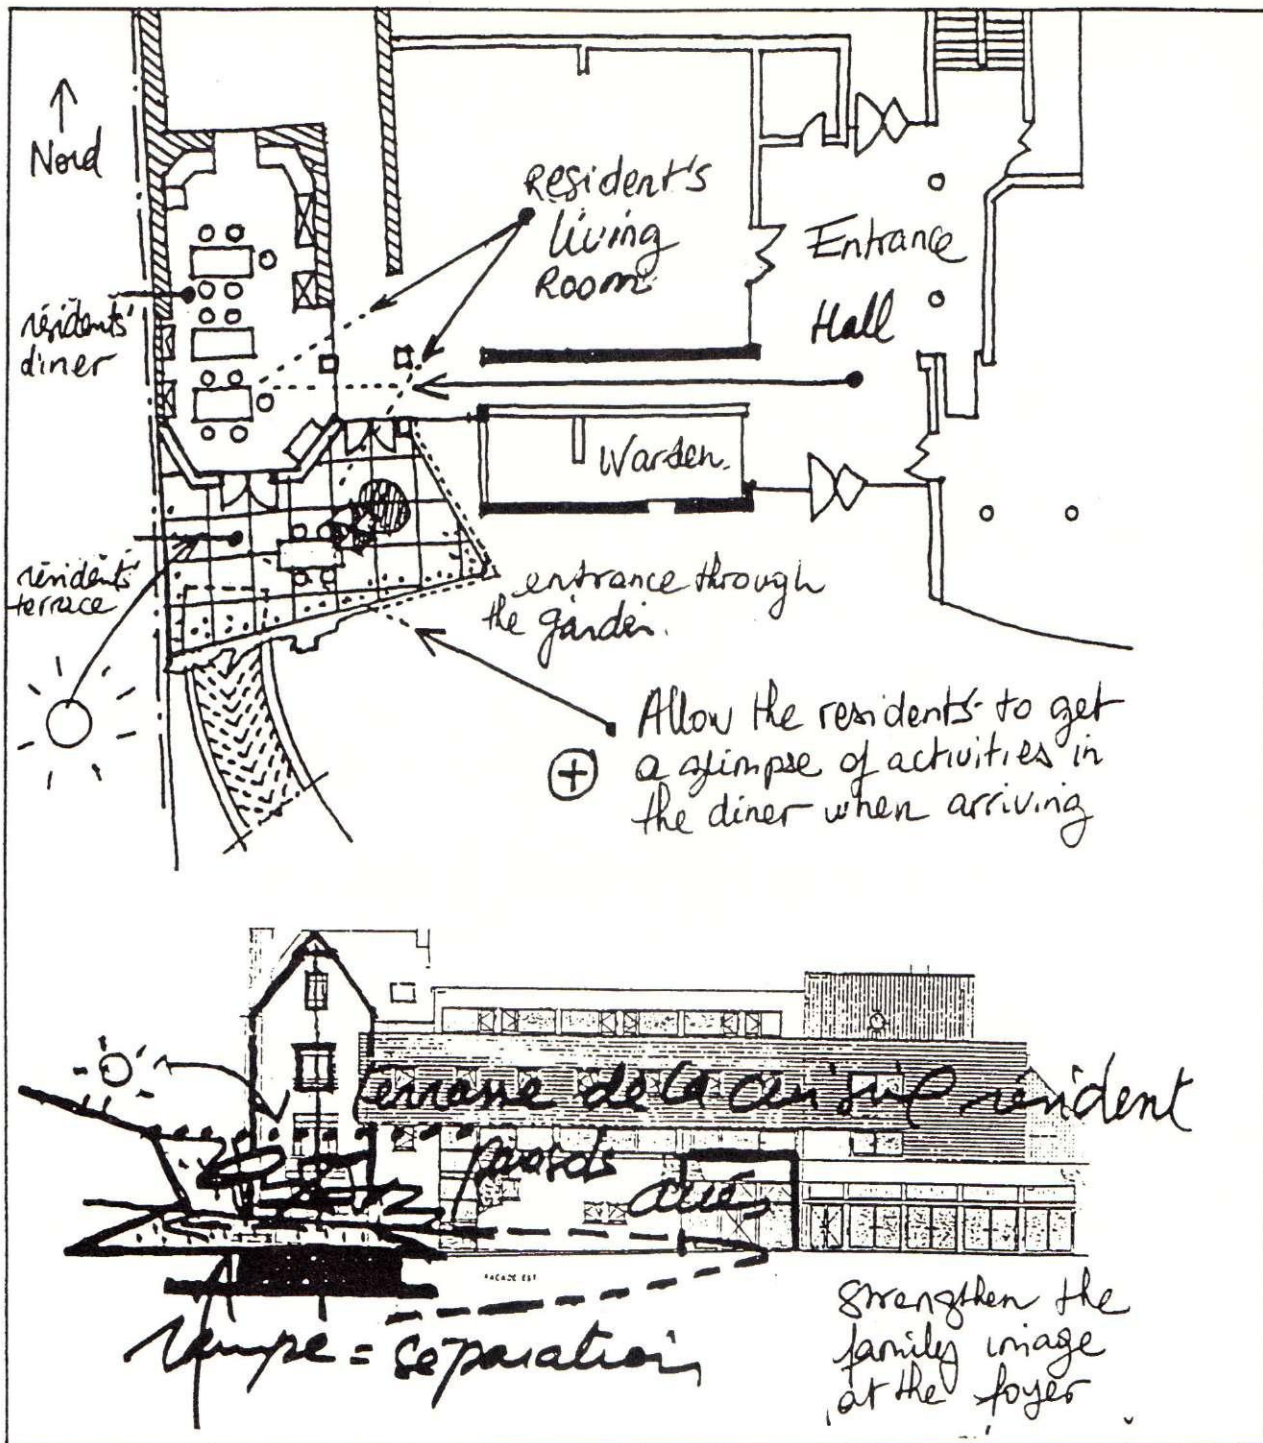 Nord
Resident's
living
Room
Entrance
Hall
résidents'
diner
Warden.
résidents'
terrace
entrance through
the garden.
Allow the residents to get
+ a glimpse of activities in
the diner when arriving
terrasse de la résident
accès
FACADE EST
rampe = séparation
Strengthen the
family image
at the foyer